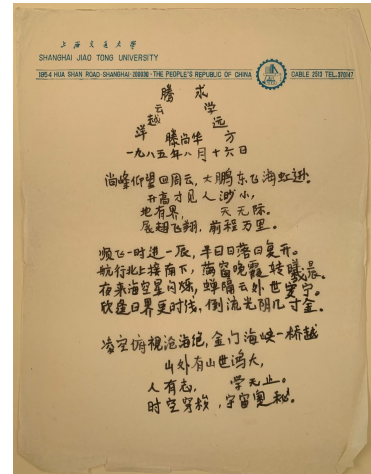 上海交通大學
SHANGHAI JIAO TONG UNIVERSITY
1954 HUA SHAN ROAD·SHANGHAI·200030·THE PEOPLE'S REPUBLIC OF CHINA CABLE 2513 TEL.370147
腾 求
云 学
越 远
洋 滕尚华 方
一九八五年八月十六日
尚峰仰望四周云，大鹏东飞海虹逊。
升高才见人渺小，
地有界， 天无际。
展翅飞翔，前程万里。
顺飞一时进一辰，半日日落日复升。
航行北上接南下，留晚霞转曦晨。
夜来海空星闪烁，蝉隔云外世寰宁。
欣逢日界更时线，倒流光阴几寸金。
凌空俯視沧海绝，金门海峡一桥越
山外有山世鸿大，
人有志， 学无止。
时空穿梭，宇宙奥秘。